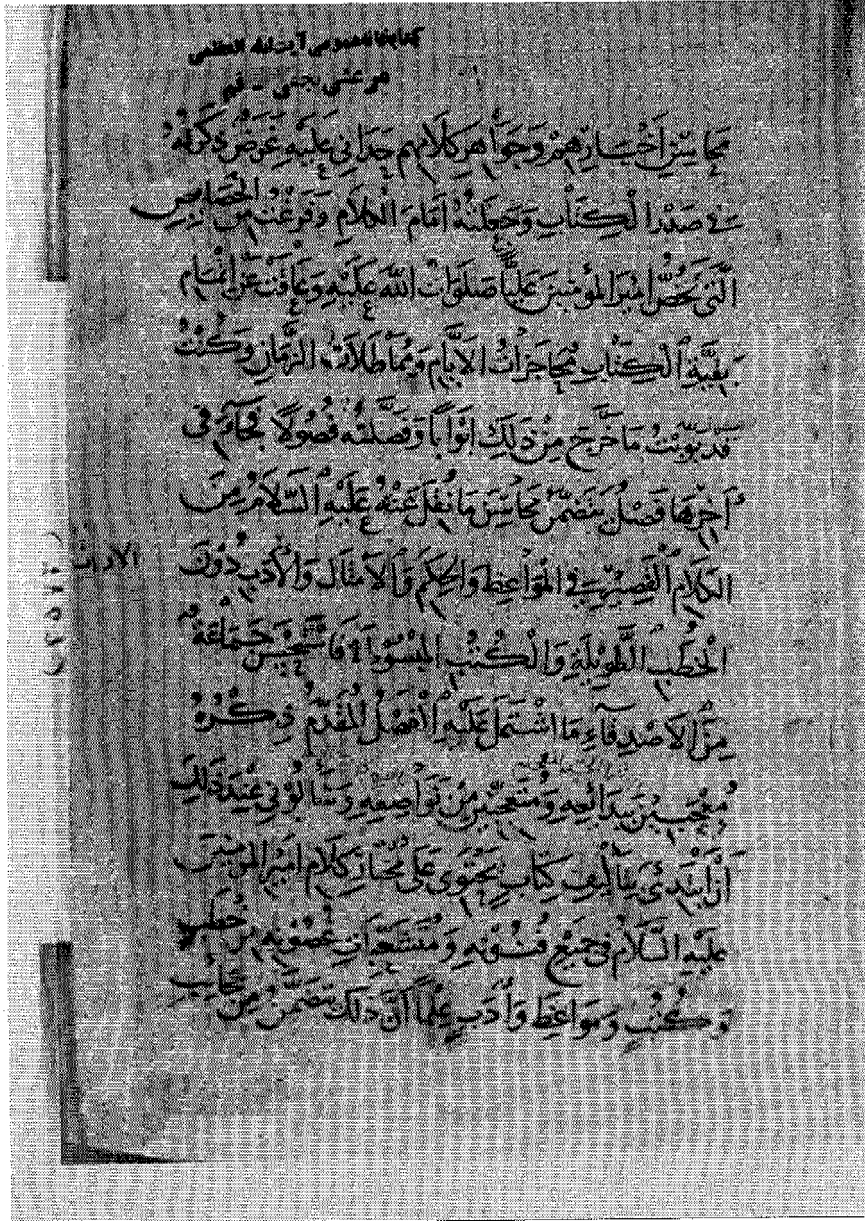 كتابخانه عمومى آيت الله العظمى
مرعشى نجفى - قم
مَحَاسِنِ أَخْبَارِهِمْ وَجَوَاهِرِ كَلَامِهِمْ حَدَانِي عَلَيْهِ غَرَضٌ ذَكَرْتُهُ
فِي صَدْرِ الْكِتَابِ وَجَعَلْتُهُ أَمَامَ الْكَلَامِ وَفَرَغْتُ مِنَ الْخَصَائِصِ
الَّتِي تَخُصُّ أَمِيرَ الْمُؤْمِنِينَ عَلِيًّا صَلَوَاتُ اللَّهِ عَلَيْهِ وَعَاقَتْ عَنْ إِتْمَامِ
بَقِيَّةِ الْكِتَابِ مُحَاجَزَاتُ الْأَيَّامِ وَمُمَاطَلَاتُ الزَّمَانِ وَكُنْتُ
قَدْ بَوَّبْتُ مَا خَرَجَ مِنْ ذَلِكَ أَبْوَابًا وَفَصَّلْتُهُ فُصُولًا فَجَاءَ فِي
آخِرِهَا فَصْلٌ يَتَضَمَّنُ مَحَاسِنَ مَا نُقِلَ عَنْهُ عَلَيْهِ السَّلَامُ مِنَ
الْكَلَامِ الْقَصِيرِ فِي الْمَوَاعِظِ وَالْحِكَمِ وَالْأَمْثَالِ وَالْأَدَبِ دُونَ
الآداب
الْخُطَبِ الطَّوِيلَةِ وَالْكُتُبِ الْمَبْسُوطَةِ فَاسْتَحْسَنَ جَمَاعَةٌ
مِنَ الْأَصْدِقَاءِ مَا اشْتَمَلَ عَلَيْهِ الْفَصْلُ الْمُقَدَّمُ ذِكْرُهُ
مُعْجَبِينَ بِبَدَائِعِهِ وَمُتَعَجِّبِينَ مِنْ نَوَاصِعِهِ وَسَأَلُونِي عِنْدَ ذَلِكَ
أَنْ أَبْتَدِئَ بِتَأْلِيفِ كِتَابٍ يَحْتَوِي عَلَى مُخْتَارِ كَلَامِ أَمِيرِ الْمُؤْمِنِينَ
عَلَيْهِ السَّلَامُ فِي جَمِيعِ فُنُونِهِ وَمُتَشَعِّبَاتِ غُصُونِهِ مِنْ خُطَبٍ
وَكُتُبٍ وَمَوَاعِظَ وَأَدَبٍ عِلْمًا أَنَّ ذَلِكَ يَتَضَمَّنُ مِنْ عَجَائِبِ